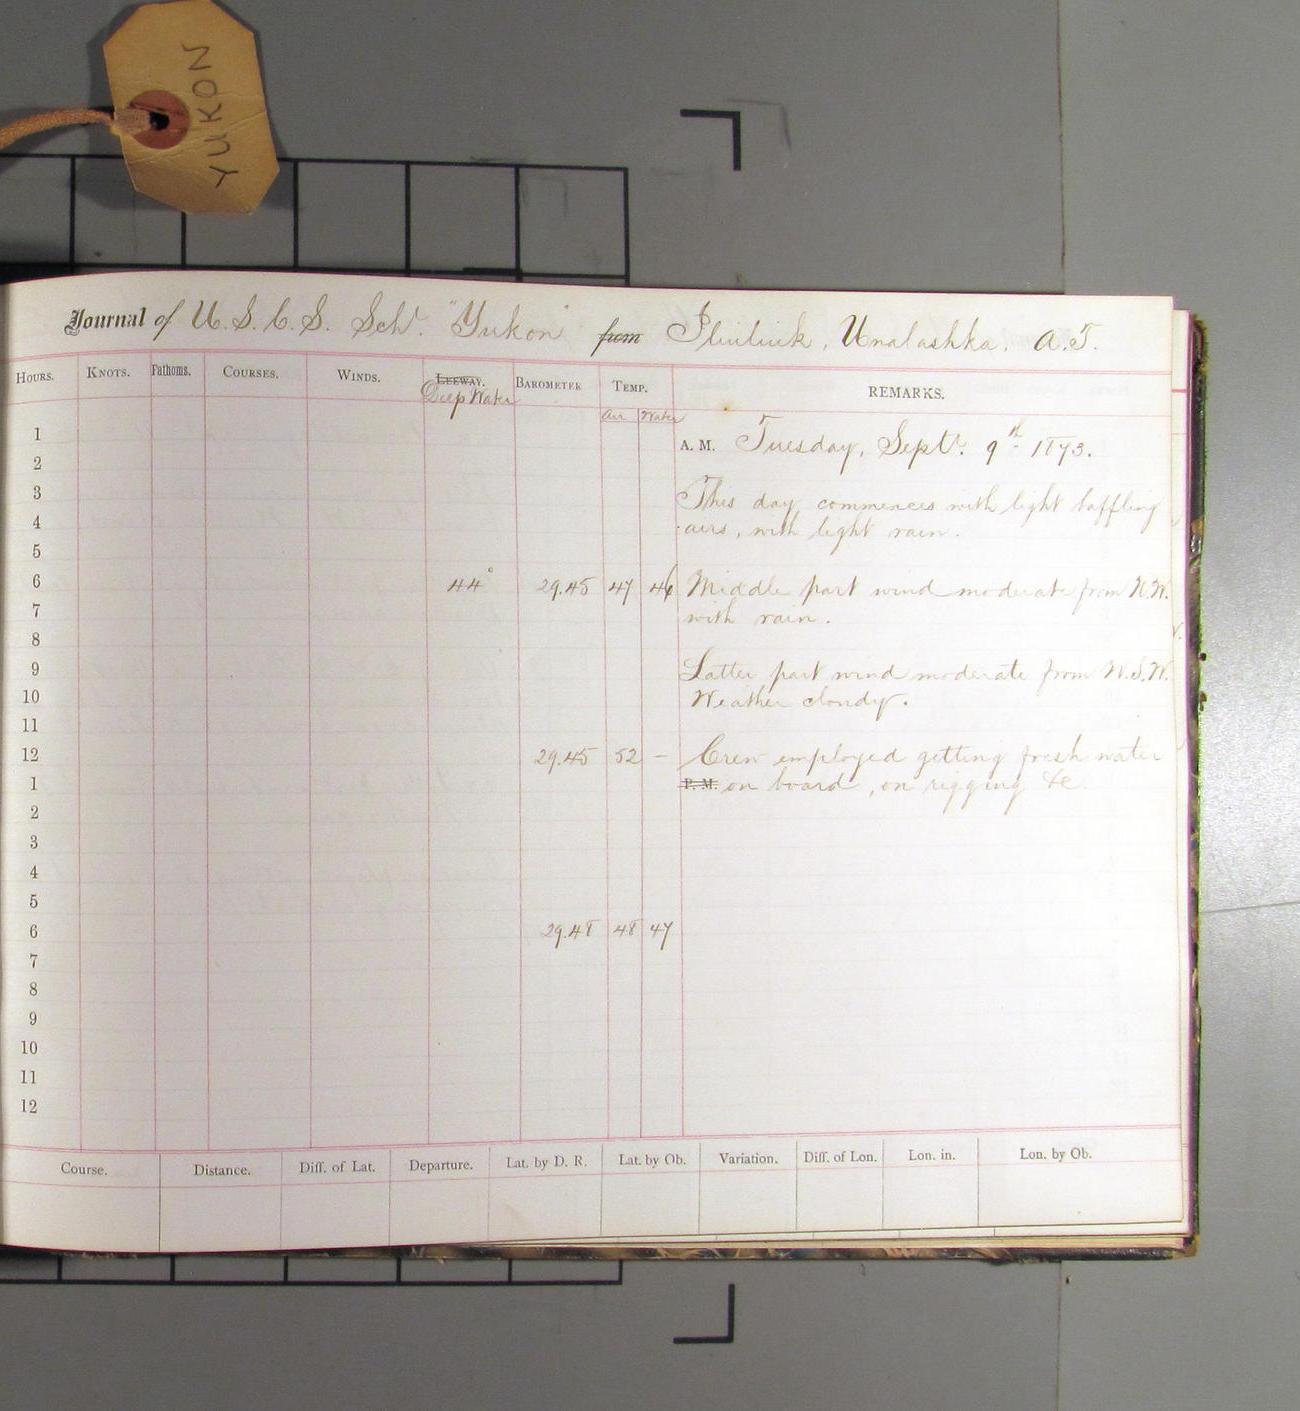 YUKON
Journal of U. S. C. S. Schr. "Yukon" from Iliuliuk, Unalashka, A.T.
HOURS. KNOTS. Fathoms. COURSES. WINDS. LEEWAY. BAROMETER TEMP. REMARKS.
Deep Water Air Water
1 A. M. Tuesday, Septr. 9th 1873.
2
3 This day commences with light baffling
4 airs, with light rain.
5
6 44° 29.45 47 46 Middle part wind moderate from N.W.
7 with rain.
8
9 Latter part wind moderate from W.S.W.
10 Weather cloudy.
11
12 29.45 52 – Crew employed getting fresh water
1 P. M. on board, on rigging &c.
2
3
4
5
6 29.48 48 47
7
8
9
10
11
12
Course. Distance. Diff. of Lat. Departure. Lat. by D. R. Lat. by Ob. Variation. Diff. of Lon. Lon. in. Lon. by Ob.